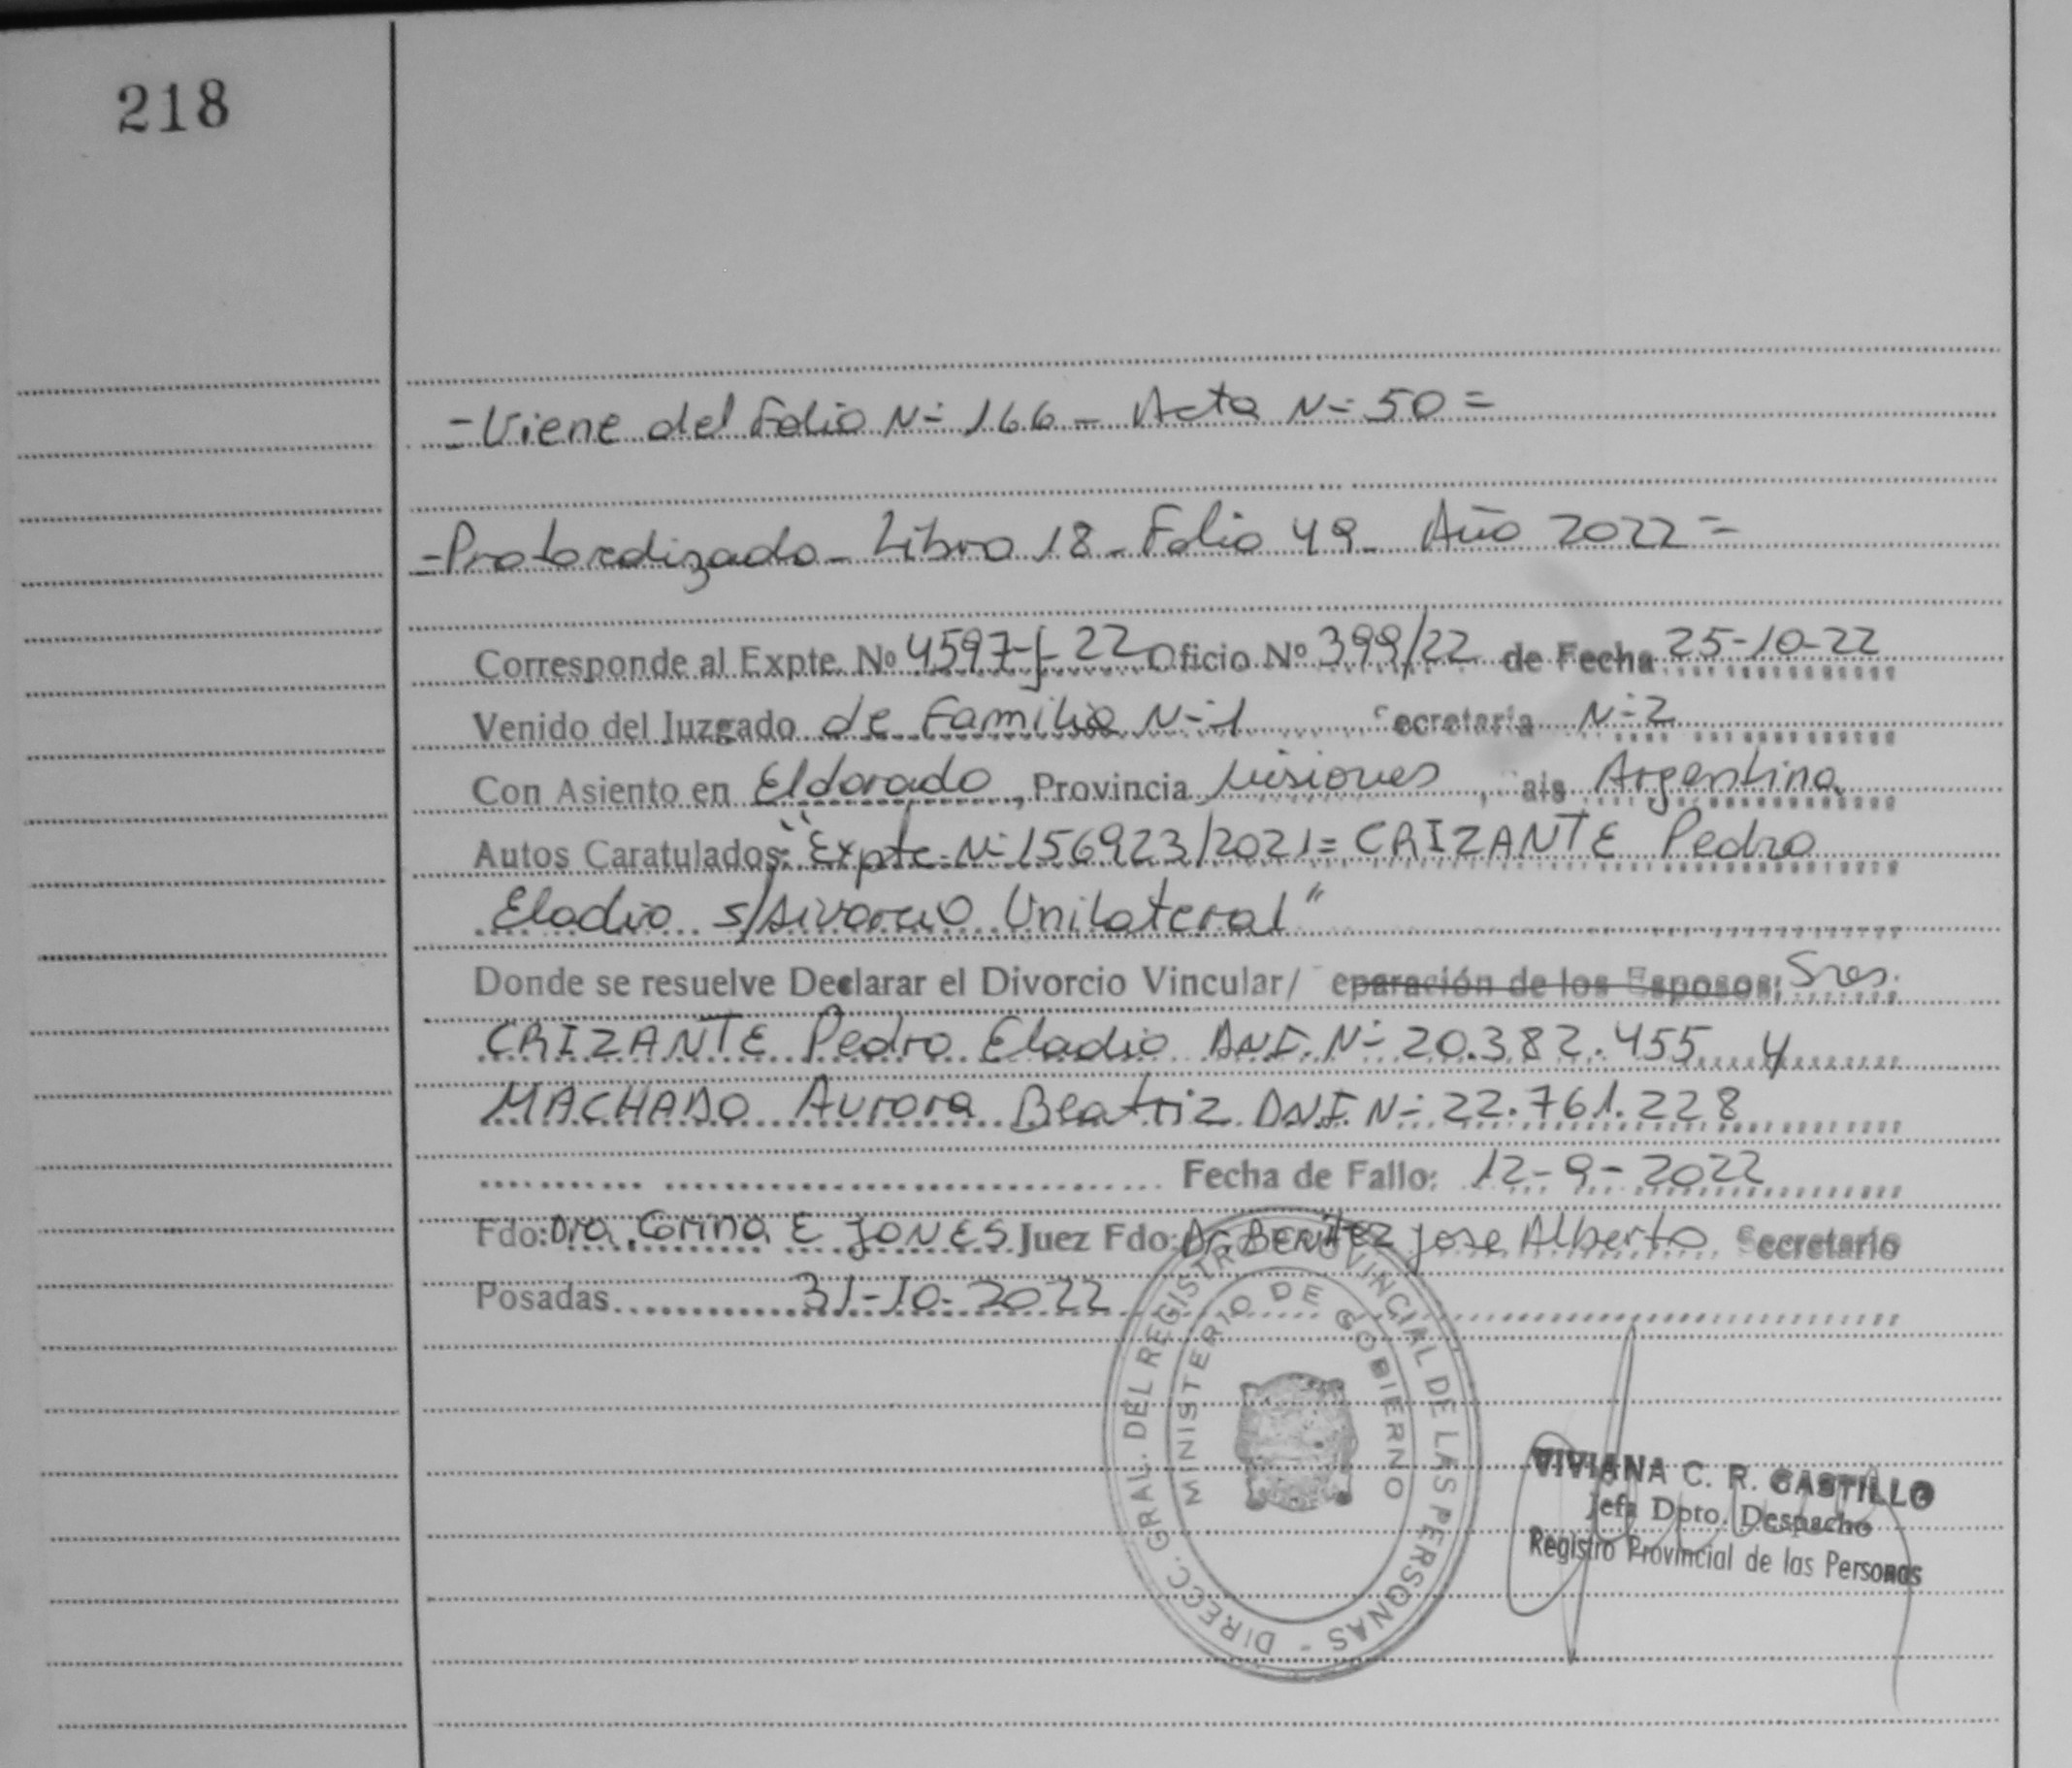 218
=Viene del Folio N= 166 - Acta N= 50 =
=Protocolizado - Libro 18 - Folio 49 - Año 2022 =
Corresponde al Expte. Nº 4597-J-22 Oficio Nº 399/22 de Fecha 25-10-22
Venido del Juzgado de Familia N=1 ecretaría N=2
Con Asiento en Eldorado, Provincia Misiones, aís Argentina.
Autos Caratulados: "Expte. N= 156923/2021 = CRIZANTE Pedro
Eladio s/Divorcio Unilateral"
Donde se resuelve Declarar el Divorcio Vincular/ eparación de los Esposos; Sres.
CRIZANTE Pedro Eladio DNI. N= 20.382.455 y
MACHADO Aurora Beatriz DNI. N= 22.761.228
Fecha de Fallo: 12-9-2022
Fdo: Dra. Corina E JONES Juez Fdo: Dr. BENITEZ Jose Alberto Secretario
Posadas 31-10-2022
DIRECC. GRAL. DEL REGISTRO PROVINCIAL DE LAS PERSONAS -
MINISTERIO DE GOBIERNO
VIVIANA C. R. CASTILLO
Jefa Dpto. Despacho
Registro Provincial de las Personas